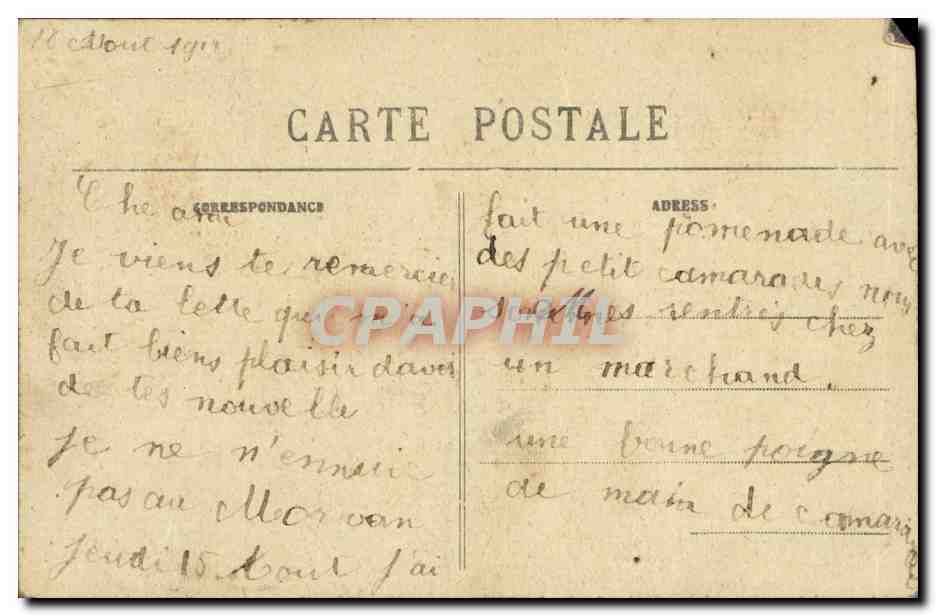 Aout
CARTE POSTALE
CORRESPONDANCE
Che ami
Je viens te remercier
de ta lette qui m'a
fait biens plaisir davoir
de tes nouvelle
Je ne n'ennuie
pas au Morvan
Jeudi 15 Aout j'ai
ADRESSE
fait une pomenade avec
des petit camarades nous
sommes rentrés chez
un marchand.
une bonne poigne
de main de camarade
CPAPHIL